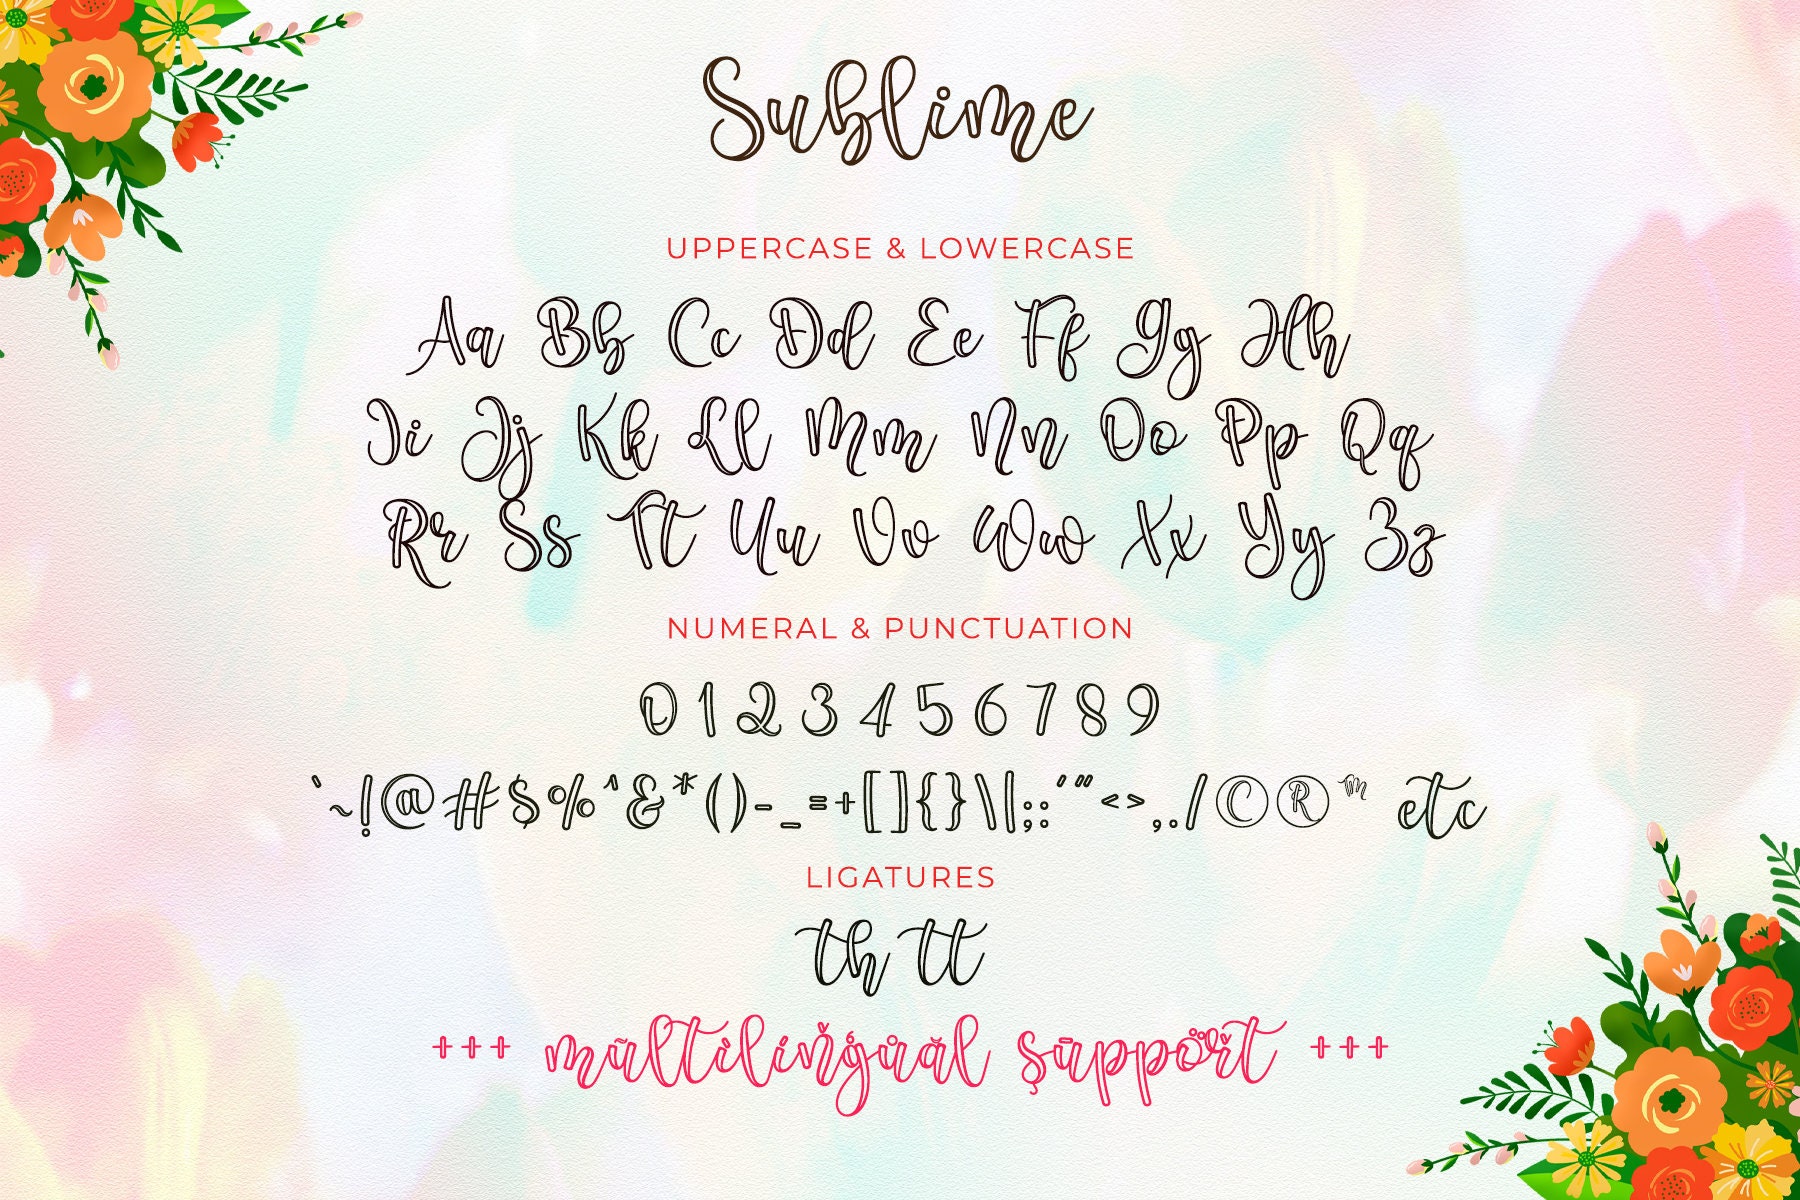 Sublime
UPPERCASE & LOWERCASE
Aa Bb Cc Dd Ee Ff Gg Hh
Ii Jj Kk Ll Mm Nn Oo Pp Qq
Rr Ss Tt Uu Vv Ww Xx Yy Zz
NUMERAL & PUNCTUATION
0 1 2 3 4 5 6 7 8 9
`~!@#$%^&*()-_=+[]{}\|;:'"<>,./©®™ etc
LIGATURES
th tt
+++ mũltìlíňģůăl şūppöřť +++